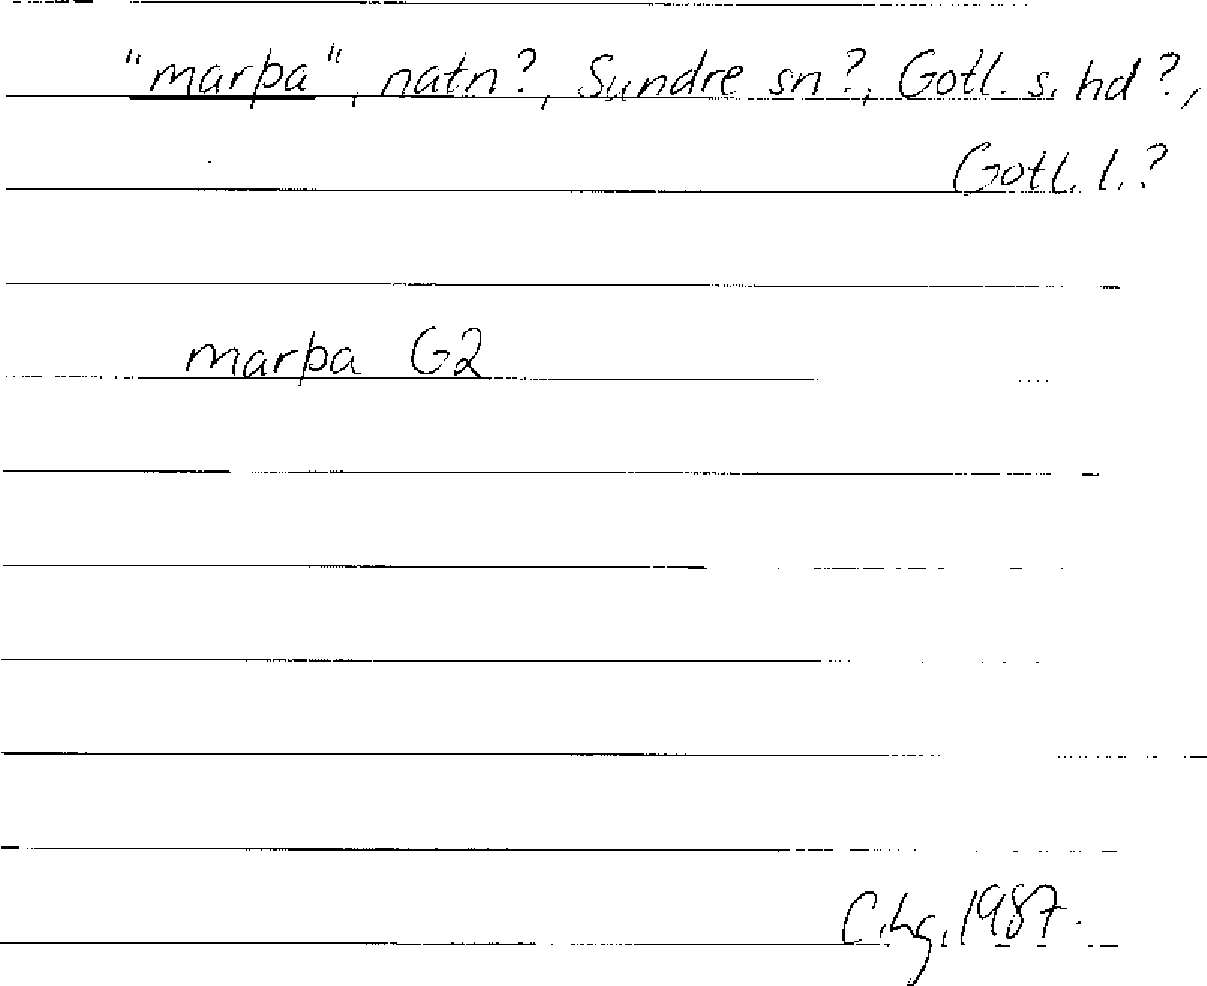 "marþa", natn?, Sundre sn?, Gotl. s. hd?,
Gotl. l.?
marþa G2
C.Lg. 1987.